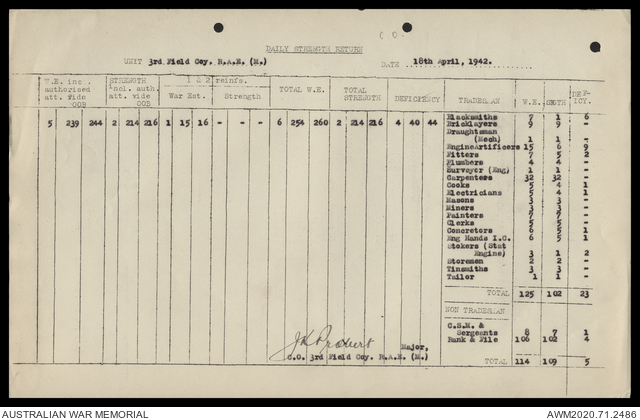 ( O.
DAILY STRENGTH RETURN
UNIT 3rd Field Coy. R.A.E. (M.) DATE 18th April, 1942.
W.E. inc. authorised att. vide OOB | STRENGTH incl. auth. att. vide OOB | 1 & 2 reinfs. | TOTAL W.E. | TOTAL STRENGTH | DEFICIENCY | TRADESMAN | W.E. | STGTH | DEF-ICY.
War Est. | Strength
5 239 244 2 214 216 1 15 16 - - - 6 254 260 2 214 216 4 40 44
Blacksmiths 7 1 6
Bricklayers 9 9 -
Draughtsman
(Mech) 1 1 -
EngineArtificers 15 6 9
Fitters 7 5 2
Plumbers 4 4 -
Surveyor (Eng) 1 1 -
Carpenters 32 32 -
Cooks 5 4 1
Electricians 5 4 1
Masons 3 3 -
Miners 3 3 -
Painters 7 7 -
Clerks 5 5 -
Concretors 6 5 1
Eng Hands I.C. 6 5 1
Stokers (Stat
Engine) 3 1 2
Storemen 2 2 -
Tinsmiths 3 3 -
Tailor 1 1 -
TOTAL 125 102 23
NON TRADESMAN
C.S.M. &
Sergeants 8 7 1
Rank & File 106 102 4
Major,
C.O. 3rd Field Coy. R.A.E. (M.)
TOTAL 114 109 5
AUSTRALIAN WAR MEMORIAL AWM2020.71.2486